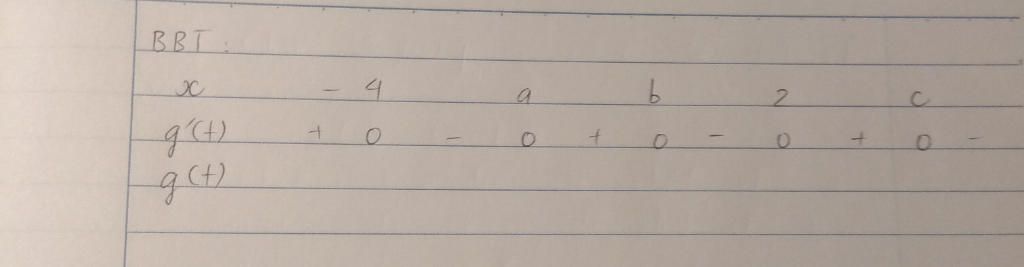 BBT :
x - 4 a b 2 c
g'(t) + 0 - 0 + 0 - 0 + 0 -
g(t)